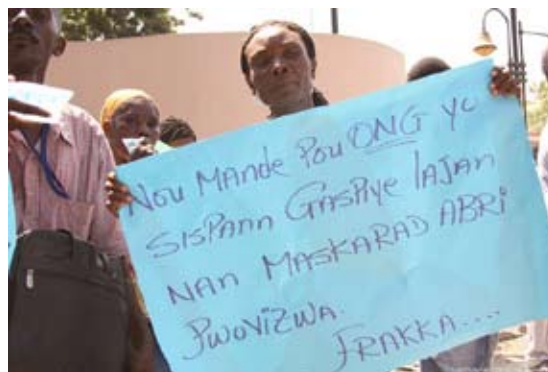 NOU MANDE POU ONG YO
SISPANN GASPIYE LAJAN
NAN MASKARAD ABRI
PWOVIZWA.
FRAKKA....